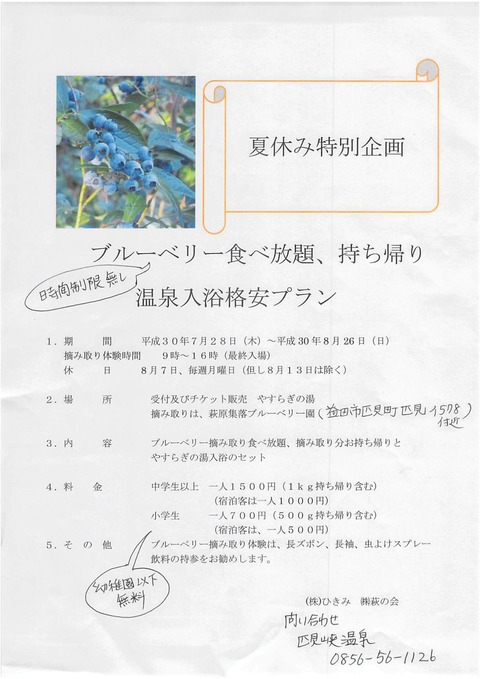 夏休み特別企画
ブルーベリー食べ放題、持ち帰り
時間制限無し
温泉入浴格安プラン
1．期　　間　　平成30年7月28日（木）～平成30年8月26日（日）
摘み取り体験時間　　9時～16時（最終入場）
休　　日　　8月7日、毎週月曜日（但し8月13日は除く）
2．場　　所　　受付及びチケット販売　やすらぎの湯
摘み取りは、萩原集落ブルーベリー園（益田市匹見町匹見イ578付近
3．内　　容　　ブルーベリー摘み取り食べ放題、摘み取り分お持ち帰りと
やすらぎの湯入浴のセット
4．料　　金　　中学生以上　一人1500円（1kg持ち帰り含む）
（宿泊客は一人1000円）
小学生　　一人700円（500g持ち帰り含む）
（宿泊客は、一人500円）
5．その他　　ブルーベリー摘み取り体験は、長ズボン、長袖、虫よけスプレー
飲料の持参をお勧めします。
幼稚園以下
無料
(株)ひきみ　㈱萩の会
問い合わせ
匹見峡温泉
0856-56-1126